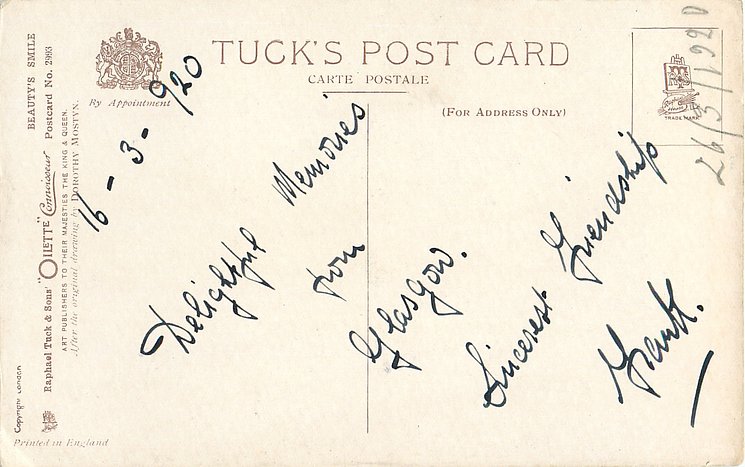 TUCK'S POST CARD
CARTE POSTALE
(FOR ADDRESS ONLY)
By Appointment
TRADE MARK
26/3/1920
16-3-920
Delightful Memories
from
Glasgow.
Sincerest Friendship
Frank.
BEAUTY'S SMILE
Raphael Tuck & Sons' "OILETTE" Connoisseur Postcard No. 2993
ART PUBLISHERS TO THEIR MAJESTIES THE KING & QUEEN.
After the original drawing by DOROTHY MOSTYN.
Copyright London
Printed in England